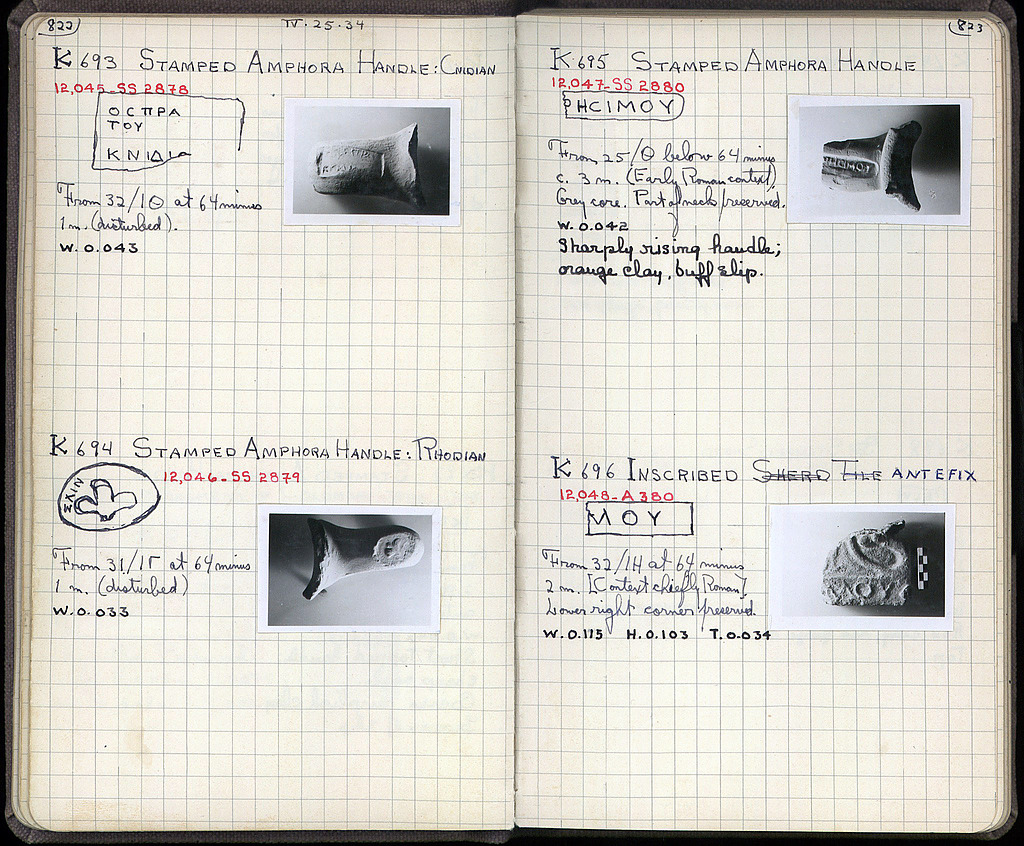 822
IV·25·34
K 693 STAMPED AMPHORA HANDLE: CNIDIAN
12,045-SS 2878
ΟϹΠΡΑ
ΤΟΥ
ΚΝΙΔΙ
From 32/ΙΘ at 64 minus
1 m. (disturbed).
W. 0.043
K 694 STAMPED AMPHORA HANDLE: RHODIAN
12,046-SS 2879
From 31/ΙΓ at 64 minus
1 m. (disturbed)
W. 0.033
823
K 695 STAMPED AMPHORA HANDLE
12,047-SS 2880
ΗϹΙΜΟΥ
From 25/Θ below 64 minus
c. 3 m. (Early Roman context).
Grey core. Part of neck preserved.
W. 0.042
Sharply rising handle;
orange clay, buff slip.
K 696 INSCRIBED SHERD TILE ANTEFIX
12,048-A 380
ΜΟΥ
From 32/ΙΗ at 64 minus
2 m. [Context chiefly Roman]
Lower right corner preserved.
W. 0.115 H. 0.103 T. 0.034